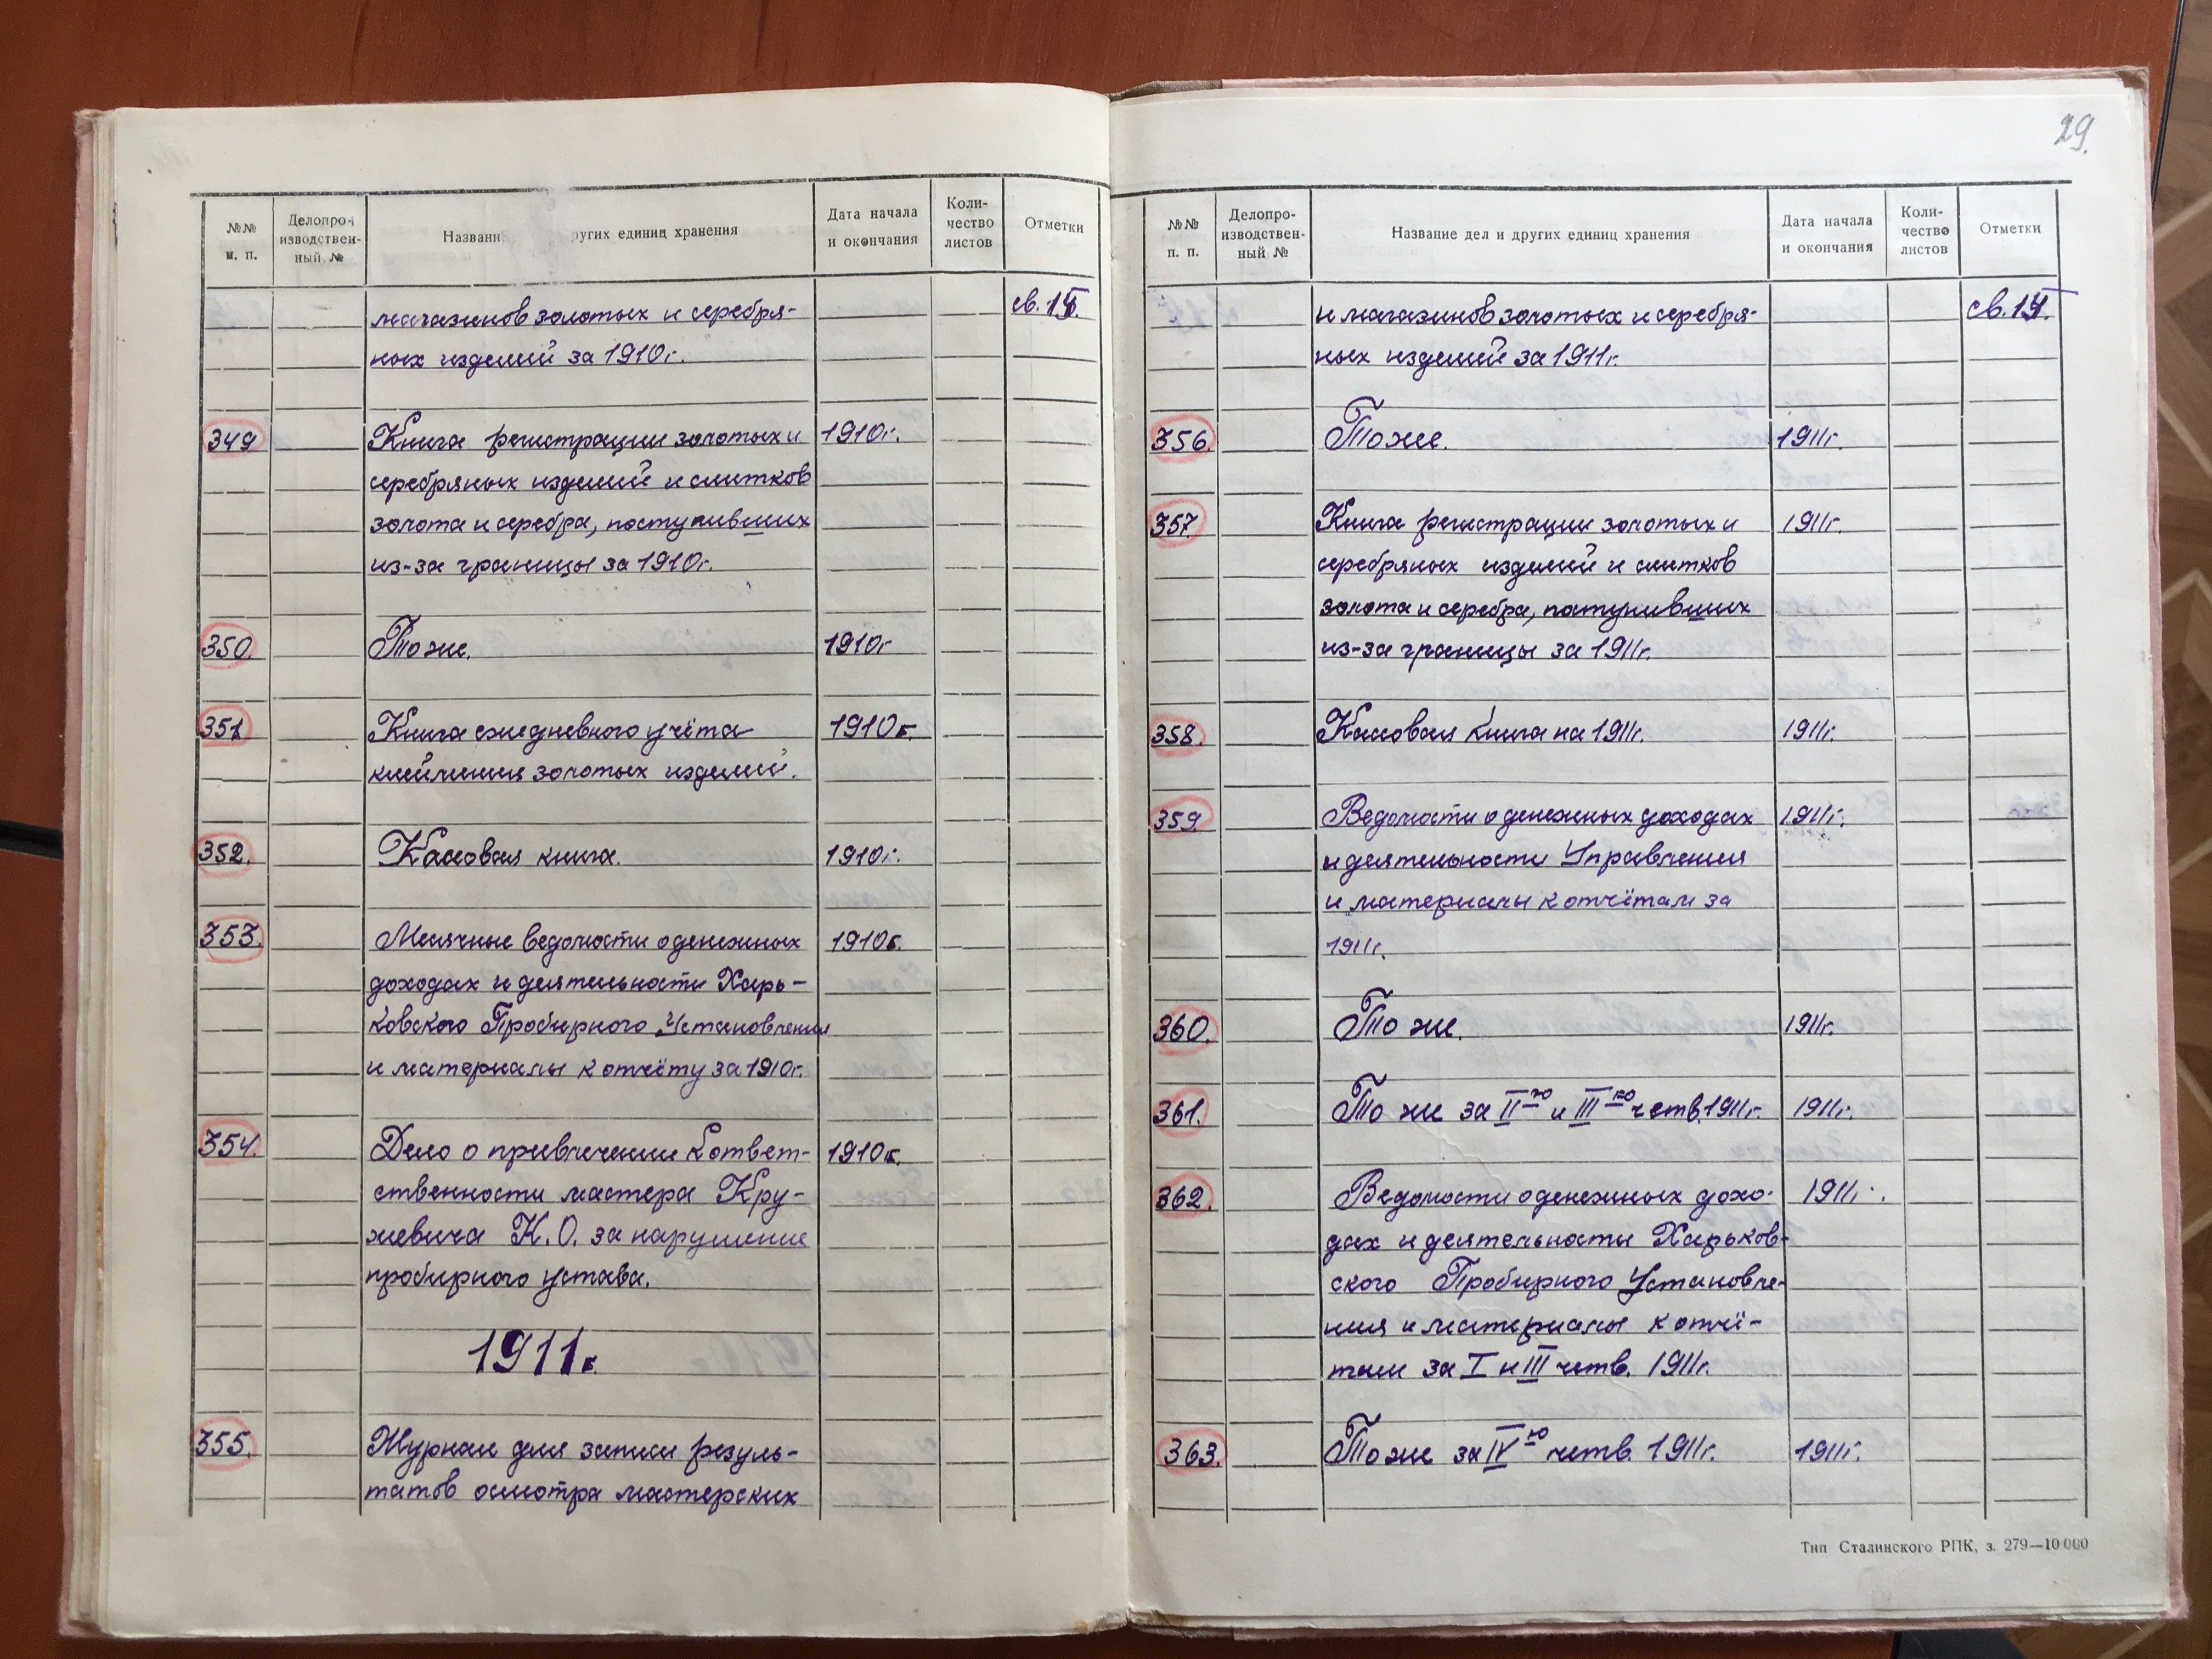 №№ п. п.
Делопро-
изводствен-
ный №
Названи ругих единиц хранения
Дата начала
и окончания
Коли-
чество
листов
Отметки
магазинов золотых и серебря-
ных изделий за 1910г.
349 Книга регистрации золотых и 1910г.
серебряных изделий и слитков
золота и серебра, поступивших
из-за границы за 1910г.
350. То же. 1910г
351 Книга ежедневного учёта 1910г.
клеймения золотых изделий.
352. Кассовая книга. 1910г.
353. Месячные ведомости о денежных 1910г.
доходах и деятельности Харь-
ковского Пробирного Установления
и материалы к отчёту за 1910г.
354. Дело о привлечении к ответ- 1910г.
ственности мастера Кру-
жевича К.О. за нарушение
пробирного устава.
1911г.
355. Журнал для записи резуль-
татов осмотра мастерских
29.
№№
п. п.
Делопро-
изводствен-
ный №
Название дел и других единиц хранения
Дата начала
и окончания
Коли-
чество
листов
Отметки
и магазинов золотых и серебря-
ных изделий за 1911г.
356. То же. 1911г.
357. Книга регистрации золотых и 1911г.
серебряных изделий и слитков
золота и серебра, поступивших
из-за границы за 1911г.
358. Кассовая книга на 1911г. 1911г.
359. Ведомости о денежных доходах 1911г.
и деятельности Управления
и материалы к отчётам за
1911г.
360. То же. 1911г.
361. То же за II-ю и III-ю четв. 1911г. 1911г.
362. Ведомости о денежных дохо- 1911г.
дах и деятельности Харьков-
ского Пробирного Установле-
ния и материалы к отчё-
там за I и III четв. 1911г.
363. То же за IV-ю четв. 1911г. 1911г.
Тип Сталинского РПК, з. 279—10 000